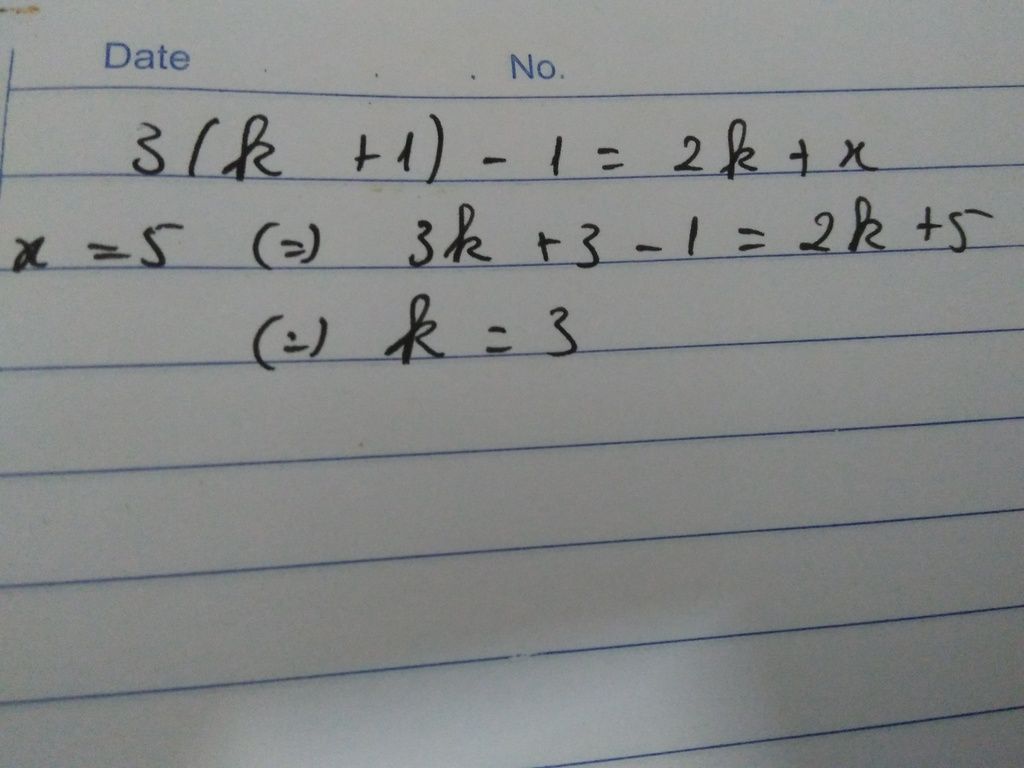 Date No.
3(k +1) - 1 = 2k + x
x = 5 (=) 3k + 3 - 1 = 2k + 5
(=) k = 3